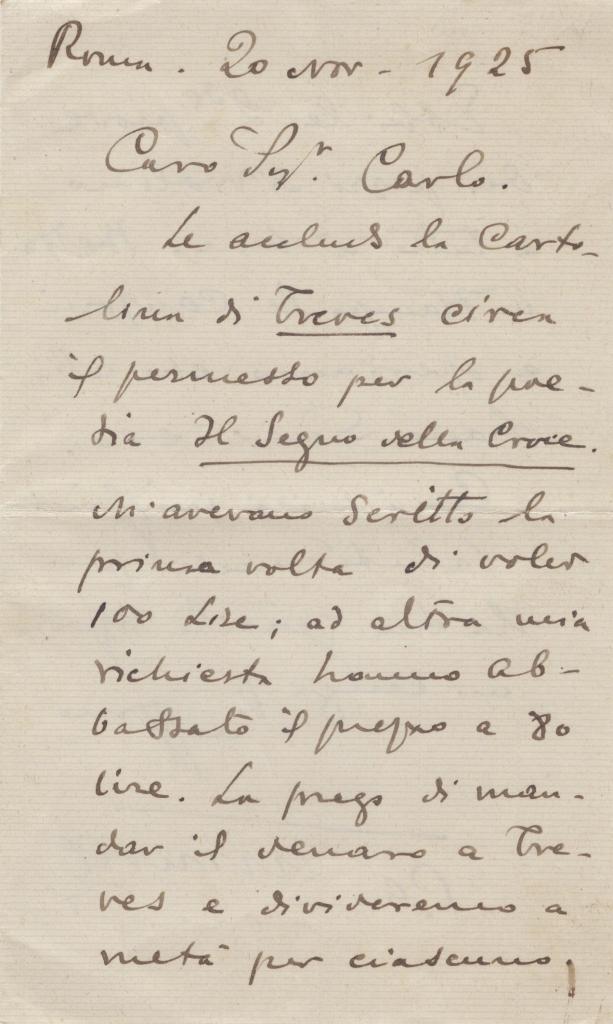 Roma. 20 Nov - 1925
Caro Sigr. Carlo.
Le accludo la Carto-
lina di Treves circa
il permesso per la poe-
sia Il Segno della Croce.
M'avevano Scritto la
prima volta di voler
100 Lire; ad altra mia
richiesta hanno ab-
bassato il prezzo a 80
lire. La prego di man-
dar il denaro a Tre-
ves e divideremo a
metà per ciascuno.